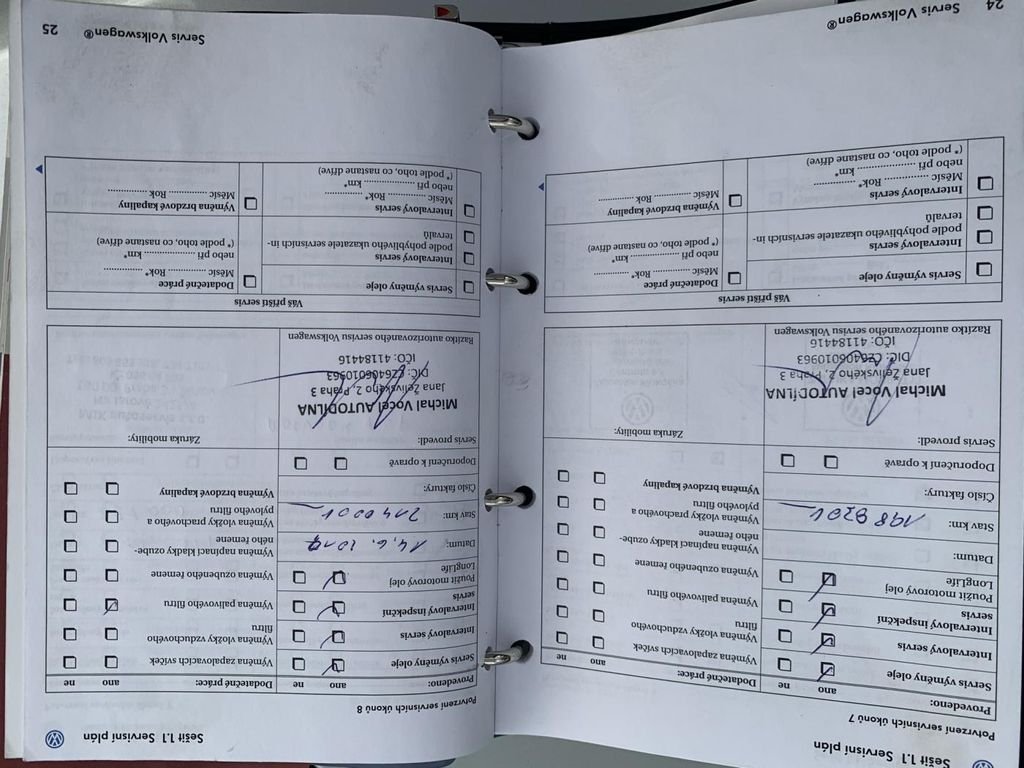 Sešit 1.1 Servisní plán
Potvrzení servisních úkonů 7
Provedeno: ano ne
Servis výměny oleje
Intervalový servis
Intervalový inspekční
servis
Použit motorový olej
LongLife
Datum:
Stav km: 198 920
Číslo faktury:
Doporučení k opravě
Dodatečné práce: ano ne
Výměna zapalovacích svíček
Výměna vložky vzduchového
filtru
Výměna palivového filtru
Výměna ozubeného řemene
Výměna napínací kladky ozube-
ného řemene
Výměna vložky prachového a
pylového filtru
Výměna brzdové kapaliny
Servis provedl:
Michal Vocel AUTODÍLNA
Jana Želivského 2, Praha 3
DIČ: CZ6406010963
IČO: 41184416
Razítko autorizovaného servisu Volkswagen
Záruka mobility:
Váš příští servis
Servis výměny oleje
Intervalový servis
podle pohyblivého ukazatele servisních in-
tervalů
Intervalový servis
Měsíc .............. Rok* ..............
nebo při .................. km*
(* podle toho, co nastane dříve)
Dodatečné práce
Měsíc .............. Rok* ..............
nebo při .................. km*
(* podle toho, co nastane dříve)
Výměna brzdové kapaliny
Měsíc .............. Rok ..............
24 Servis Volkswagen®
Sešit 1.1 Servisní plán
Potvrzení servisních úkonů 8
Provedeno: ano ne
Servis výměny oleje
Intervalový servis
Intervalový inspekční
servis
Použit motorový olej
LongLife
Datum: 14. 6.
Stav km: 214 000
Číslo faktury:
Doporučení k opravě
Dodatečné práce: ano ne
Výměna zapalovacích svíček
Výměna vložky vzduchového
filtru
Výměna palivového filtru
Výměna ozubeného řemene
Výměna napínací kladky ozube-
ného řemene
Výměna vložky prachového a
pylového filtru
Výměna brzdové kapaliny
Servis provedl:
Michal Vocel AUTODÍLNA
Jana Želivského 2, Praha 3
DIČ: CZ6406010963
IČO: 41184416
Razítko autorizovaného servisu Volkswagen
Záruka mobility:
Váš příští servis
Servis výměny oleje
Intervalový servis
podle pohyblivého ukazatele servisních in-
tervalů
Intervalový servis
Měsíc .............. Rok* ..............
nebo při .................. km*
(* podle toho, co nastane dříve)
Dodatečné práce
Měsíc .............. Rok* ..............
nebo při .................. km*
(* podle toho, co nastane dříve)
Výměna brzdové kapaliny
Měsíc .............. Rok ..............
Servis Volkswagen® 25